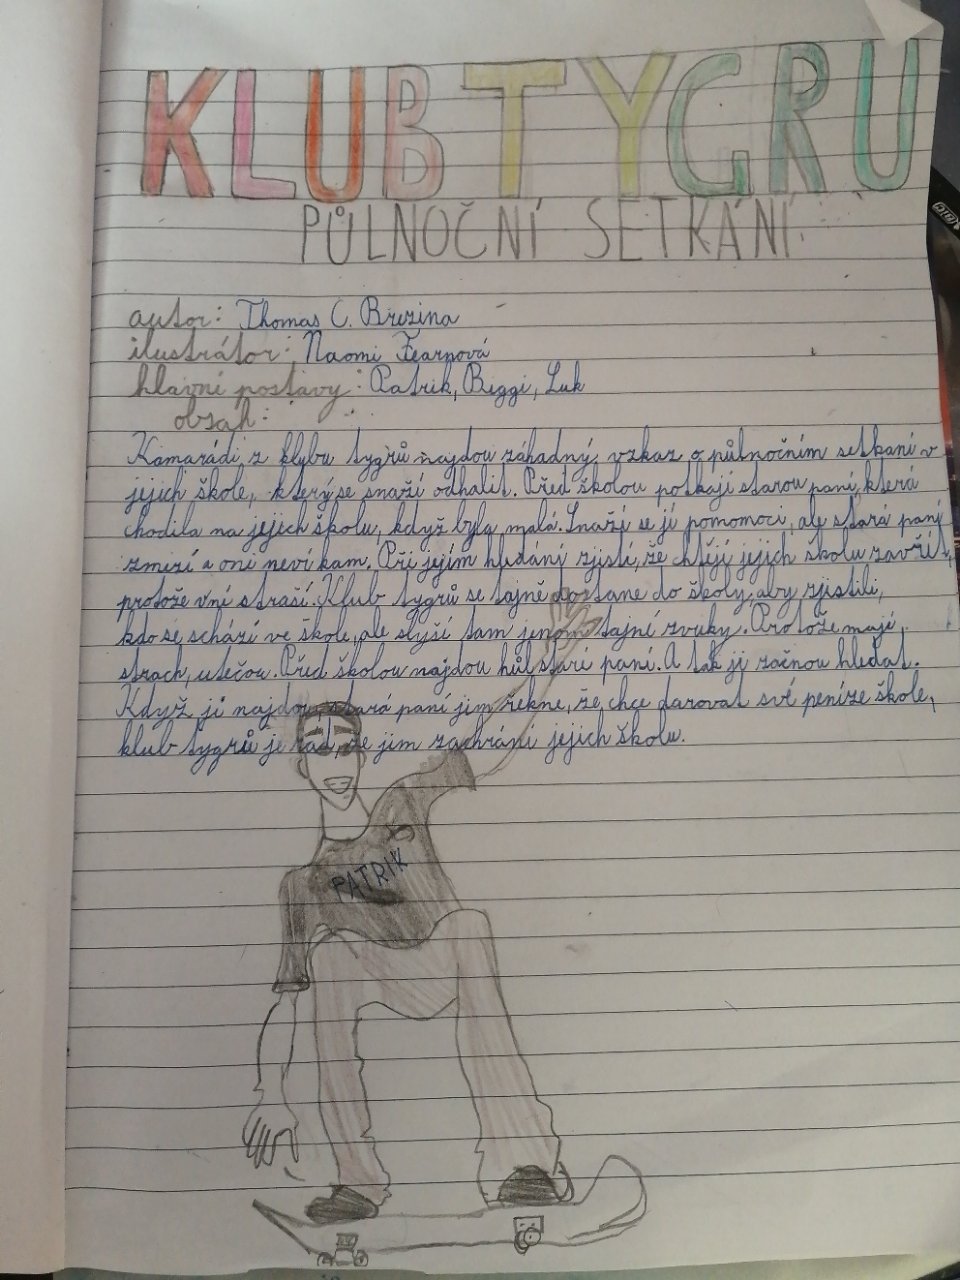 KLUB TYGRU
PŮLNOČNÍ SETKÁNÍ
autor: Thomas C. Brezina
ilustrátor: Naomi Fearnová
hlavní postavy: Patrik, Biggi, Luk
obsah:
Kamarádi z klubu tygrů najdou záhadný vzkaz o půlnočním setkaní v
jejich škole, který se snaží odhalit. Před školou potkají starou paní, která
chodila na jejich školu, když byla malá. Snaží se jí pomomoci, ale stará paní
zmizí a oni neví kam. Při jejím hledání zjistí, že chtějí jejich školu zavřít,
protože v ní straší. Klub tygrů se tajně dostane do školy, aby zjistili,
kdo se schází ve škole, ale slyší tam jenom tajné zvuky. Protože mají
strach, utečou. Před školou najdou hůl staré paní. A tak ji začnou hledat.
Když ji najdou, stará paní jim řekne, že chce darovat své peníze škole,
klub tygrů je rád, že jim zachrání jejich školu.
PATRIK